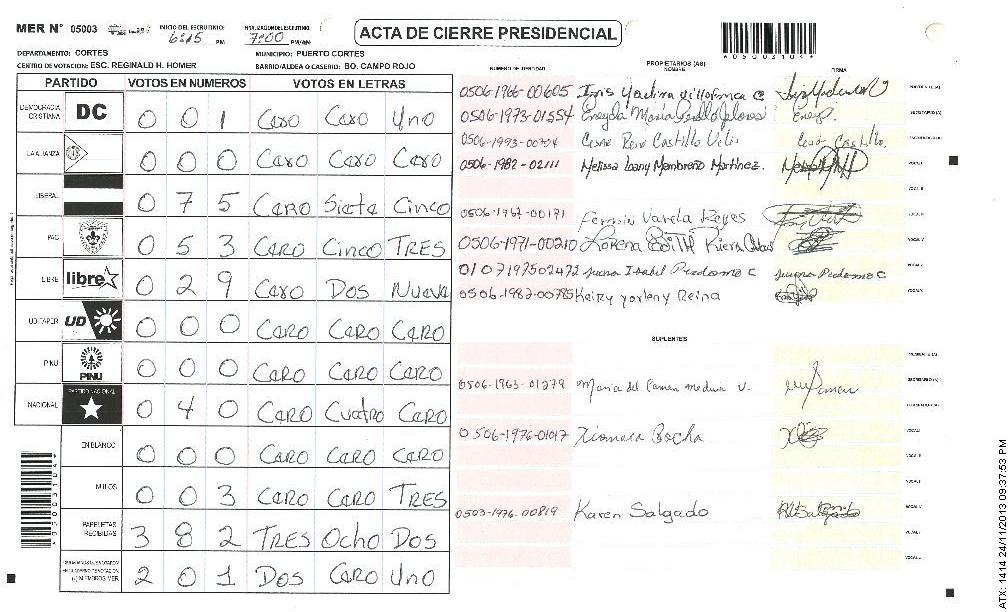 MER N° 05003
INICIO DEL ESCRUTINIO: 6:15 PM
FINALIZACION DEL ESCRUTINIO: 7:00 PM/AM
ACTA DE CIERRE PRESIDENCIAL
DEPARTAMENTO: CORTES
MUNICIPIO: PUERTO CORTES
CENTRO DE VOTACION: ESC. REGINALD H. HOMER
BARRIO/ALDEA O CASERIO: BO. CAMPO ROJO
PARTIDO VOTOS EN NUMEROS VOTOS EN LETRAS
DEMOCRACIA CRISTIANA DC 0 0 1 Caro Caro Uno
LA ALIANZA 0 0 0 Caro Caro Caro
LIBERAL 0 7 5 Caro Siete Cinco
PAC 0 5 3 Caro Cinco TRES
LIBRE libre 0 2 9 Caro Dos Nueve
UD-FAPER UD 0 0 0 Caro Caro Caro
PINU PINU 0 0 0 Caro Caro Caro
NACIONAL PARTIDO NACIONAL 0 4 0 Caro Cuatro Caro
EN BLANCO 0 0 0 Caro Caro Caro
NULOS 0 0 3 Caro Caro TRES
PAPELETAS RECIBIDAS 3 8 2 TRES Ocho Dos
2 0 1 Dos Caro Uno
NUMERO DE IDENTIDAD PROPIETARIOS (AS) NOMBRE FIRMA
0506-1966-00605
0506-1973-01554 Eneyda Maria
0506-1993-00734 Cesar Rene Castillo Cesar Castillo
0506-1982-02111 Melissa Ioany Membreño Martinez.
0506-1967-00191 Fermin Varela Reyes
0506-1971-00210 Lorena Edith Riera
0107197502472 Juana Isabel Perdomo C Juana Perdomo C
0506-1982-00785 Keiry Yorleny Reina
SUPLENTES
0506-1963-01279 Maria del Carmen Medina V.
0506-1976-01017 Xiomara Bocha
0503-1976-00819 Karen Salgado
ATX: 1414 24/11/2013 09:37:53 PM